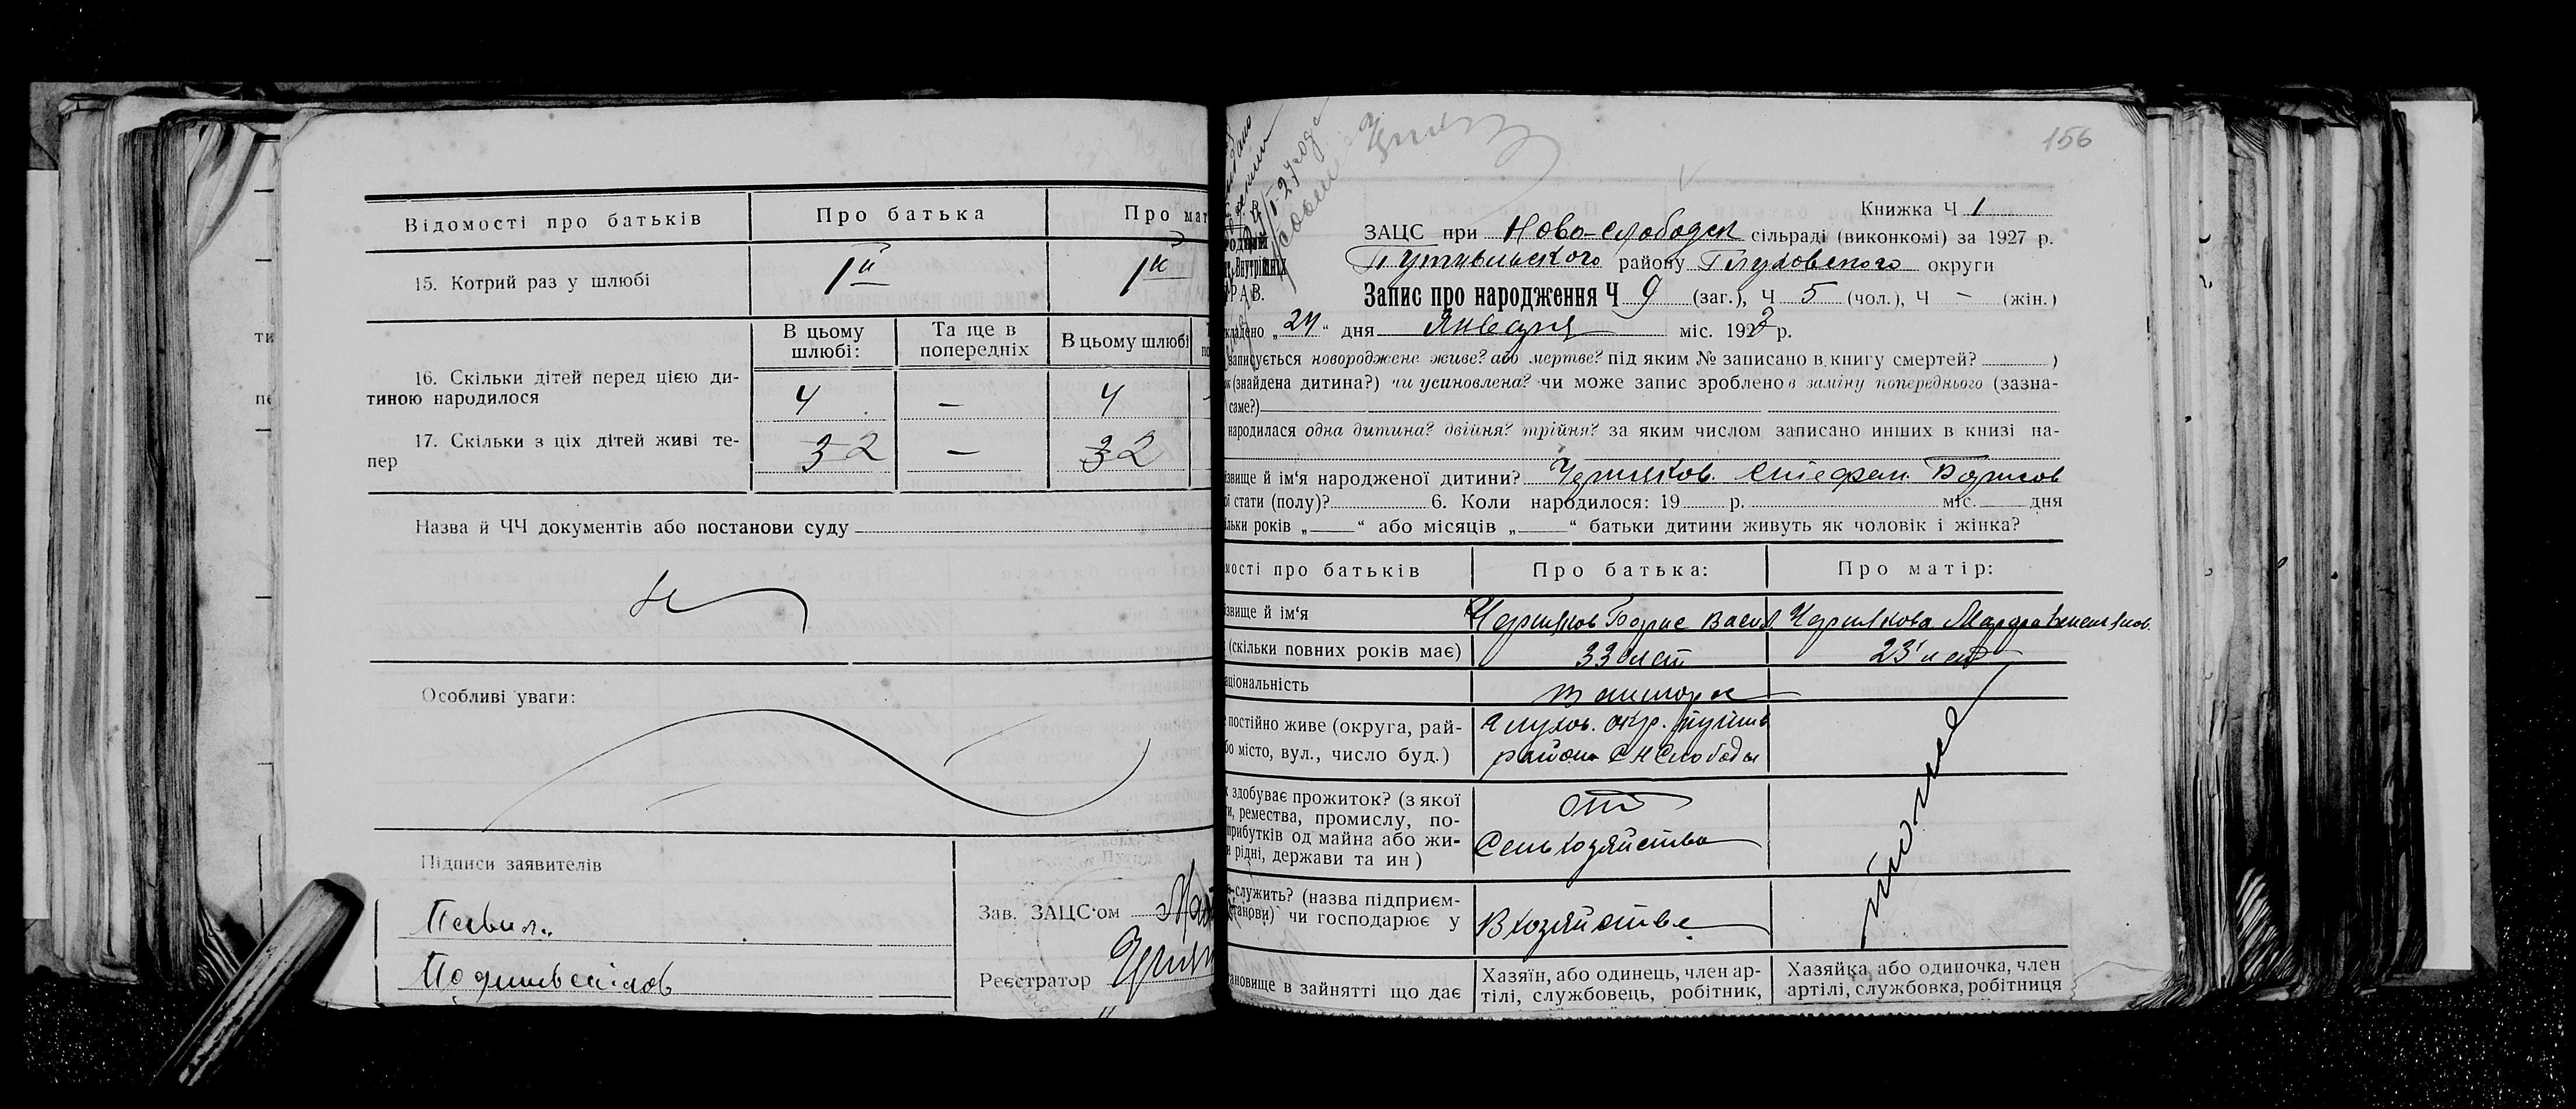 Відомості про батьків
Про батька
Про мат
15. Котрий раз у шлюбі
1й
1й
В цьому шлюбі:
Та ще в попередніх
В цьому шлюбі
16. Скільки дітей перед цією ди-
тиною народилося
4
—
4
17. Скільки з ціх дітей живі те-
пер
3 2
—
3 2
Назва й ЧЧ документів або постанови суду
Особливі уваги:
Підписи заявителів
Зав. ЗАЦС‘ом
Реєстратор
156
Книжка Ч 1
ЗАЦС при Ново-Слободск сільраді (виконкомі) за 1927 р.
Путивльского району Глуховского округи
Запис про народження Ч 9 (заг.), Ч 5 (чол.), Ч — (жін.)
кладено „24“ дня Января міс. 1927 р.
записується новороджене живе? або мертве? під яким № записано в книгу смертей? )
(знайдена дитина?) чи усиновлена? чи може запис зроблено в заміну попереднього (зазна-
саме?)
народилася одна дитина? двійня? трійня? за яким числом записано инших в книзі на-
звище й ім‘я народженої дитини? Черняков Стефан Борисов
ої стати (полу)? 6. Коли народилося: 19 р. міс. дня
ільки років „ “ або місяців „ “ батьки дитини живуть як чоловік і жінка?
мості про батьків
Про батька:
Про матір:
звище й ім‘я
Черняков Борис Васил.
Чернякова Марфа
(скільки повних років має)
33 лет
23 лет
аціональність
постійно живе (округа, рай-
бо місто, вул., число буд.)
Глухов. окр. Путив
района С Н Слободы
здобуває прожиток? (з якої
и, ремества, промислу, по-
прибутків од майна або жи-
и рідні, держави та ин)
от
Сельхозяйства
служить? (назва підприєм-
танови) чи господарює у
В хозяйстве
ановище в зайнятті що дає
Хазяїн, або одинець, член ар-
тілі, службовець, робітник,
Хазяйка, або одиночка, член
артілі, службовка, робітниця